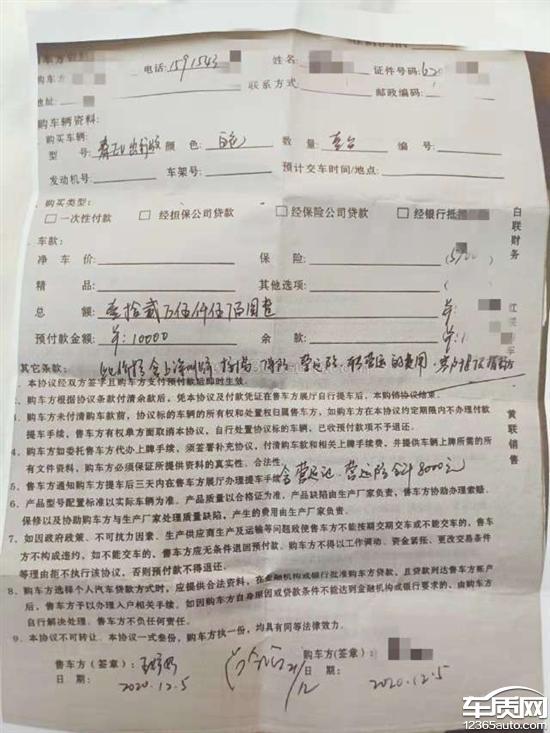 电话: 1591543 姓名: 证件号码: 620
购车方 联系方式: 邮政编码:
地址:
购车辆资料:
购买车辆:
型 号: 颜 色: 白色 数 量: 壹台 编 号:
发动机号: 车架号: 预计交车时间/地点:
购买类型:
□ 一次性付款 □ 经担保公司贷款 □ 经保险公司贷款 □ 经银行抵
车款:
净 车 价: 保 险:
精 品: 其他选项:
总 额: 壹拾贰万伍仟伍佰圆整
预付款金额: 10000 余 款:
其它条款:
1、本协议经双方签字且购车方支付预付款后即时生效。
2、购车方根据协议条款付清余款后，凭本协议及付款凭证在售车方展厅自行提车后，本购销协议结束。
3、购车方未付清购车款前，协议标的车辆的所有权和处置权归属售车方，如购车方在本协议约定期限内不办理付款
提车手续，售车方有权单方面取消本协议，自行处置协议标的车辆，已收预付款项不予退还。
4、购车方如委托售车方代办上牌手续，须签署补充协议，付清购车款和相关上牌费，并提供车辆上牌所需的所
有文件资料，购车方必须保证所提供资料的真实性、合法性。
5、售车方通知购车方提车后三天内在售车方展厅办理提车手续
含营运证、营运险合计8000元
6、产品型号配置标准以实际车辆为准，产品质量以合格证为准，产品缺陷由生产厂家负责，售车方协助办理索赔、
保修以及协助购车方与生产厂家处理质量缺陷，产生的费用由生产厂家负责。
7、如因政府政策、不可抗力因素、生产供应商生产及运输等问题致使售车方不能按期交车或不能交车的，售车
方不构成违约，如不能交车的，售车方应无条件退回预付款。购车方不得以工作调动、资金紧张、更改交易条件
等理由拒不执行该协议，否则预付款不得退还。
8、购车方选择个人汽车贷款方式时，应提供合法资料，在金融机构或银行批准购车方贷款，且贷款到达售车方账户
后，售车方予以办理入户相关手续，如因购车方自身原因或贷款条件不能达到金融机构或银行要求的，由购车方
自行解决处理。售车方不负任何责任。
9、本协议不可转让。本协议一式叁份，购车方执一份，均具有同等法律效力。
售车方（签章）: 购车方（签章）:
日 期: 2020.12.5 日 期: 2020.12.5
白联财务
黄联销售
车质网
12365auto.com